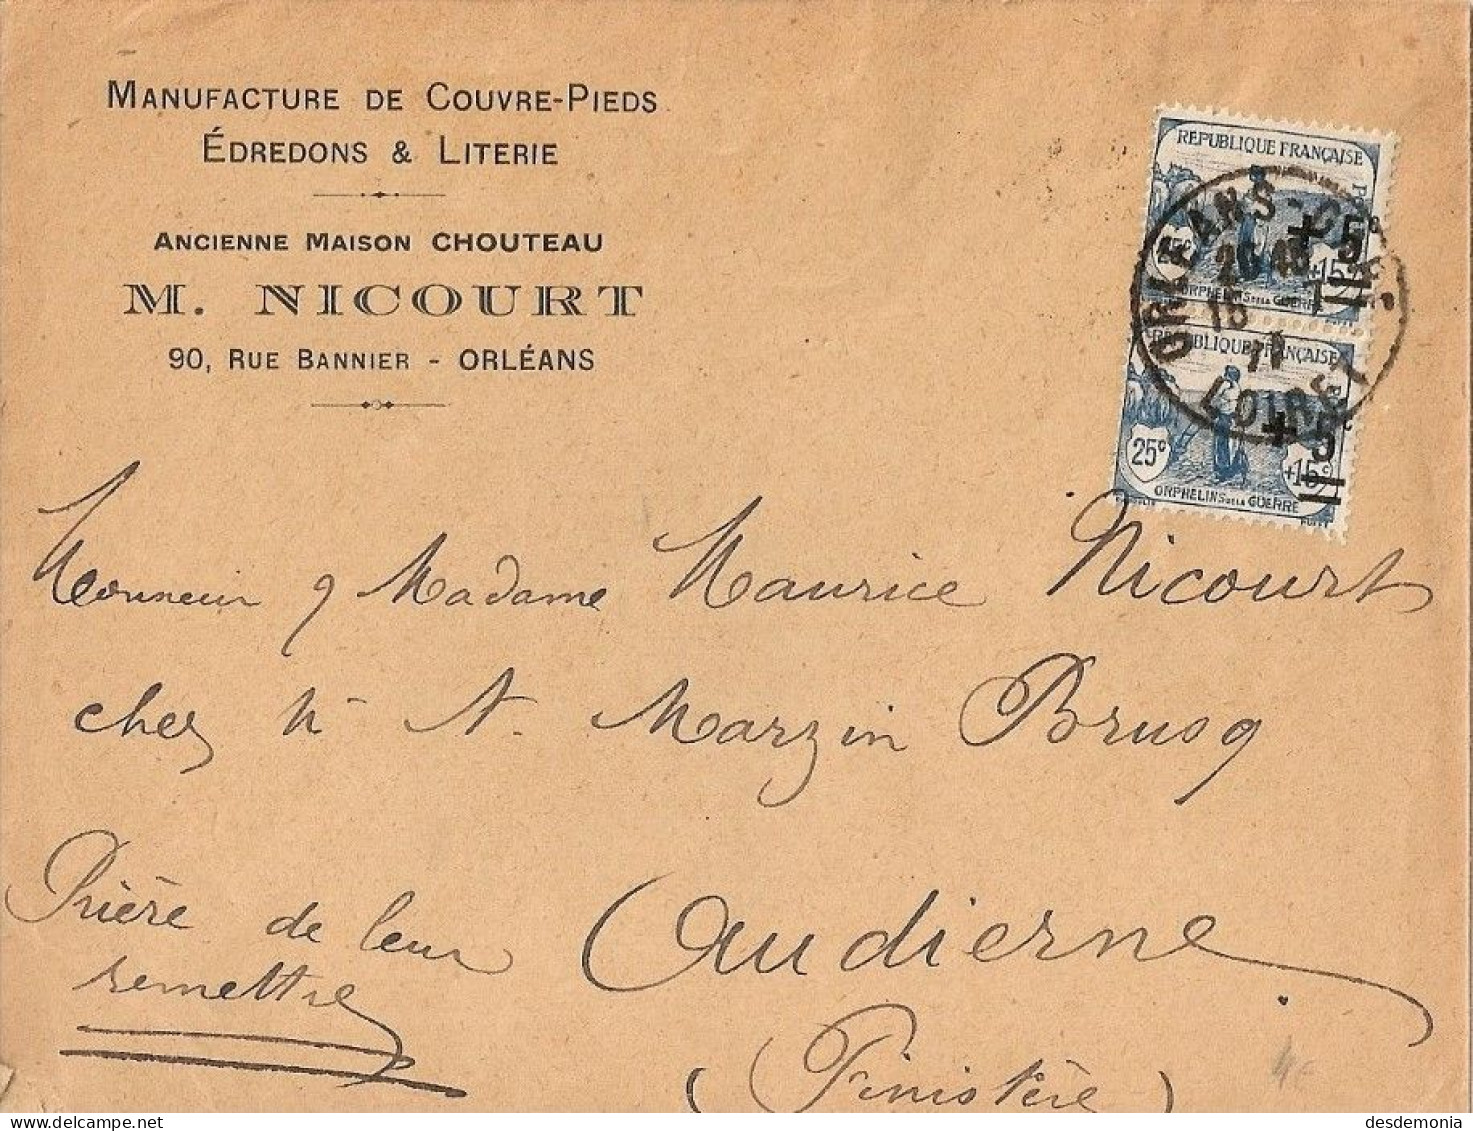 MANUFACTURE DE COUVRE-PIEDS
ÉDREDONS & LITERIE
ANCIENNE MAISON CHOUTEAU
M. NICOURT
90, RUE BANNIER - ORLÉANS
REPUBLIQUE FRANÇAISE
+5c
+15c
ORPHELINS DE LA GUERRE
ORLEANS
15
LOIRET
REPUBLIQUE FRANÇAISE
+5c
25c
+15c
ORPHELINS DE LA GUERRE
Monsieur & Madame Maurice Nicourt
chez Mr A. Marzin Brusq
Prière de leur
remettre
Audierne
(Finistère)
4€
desdemonia